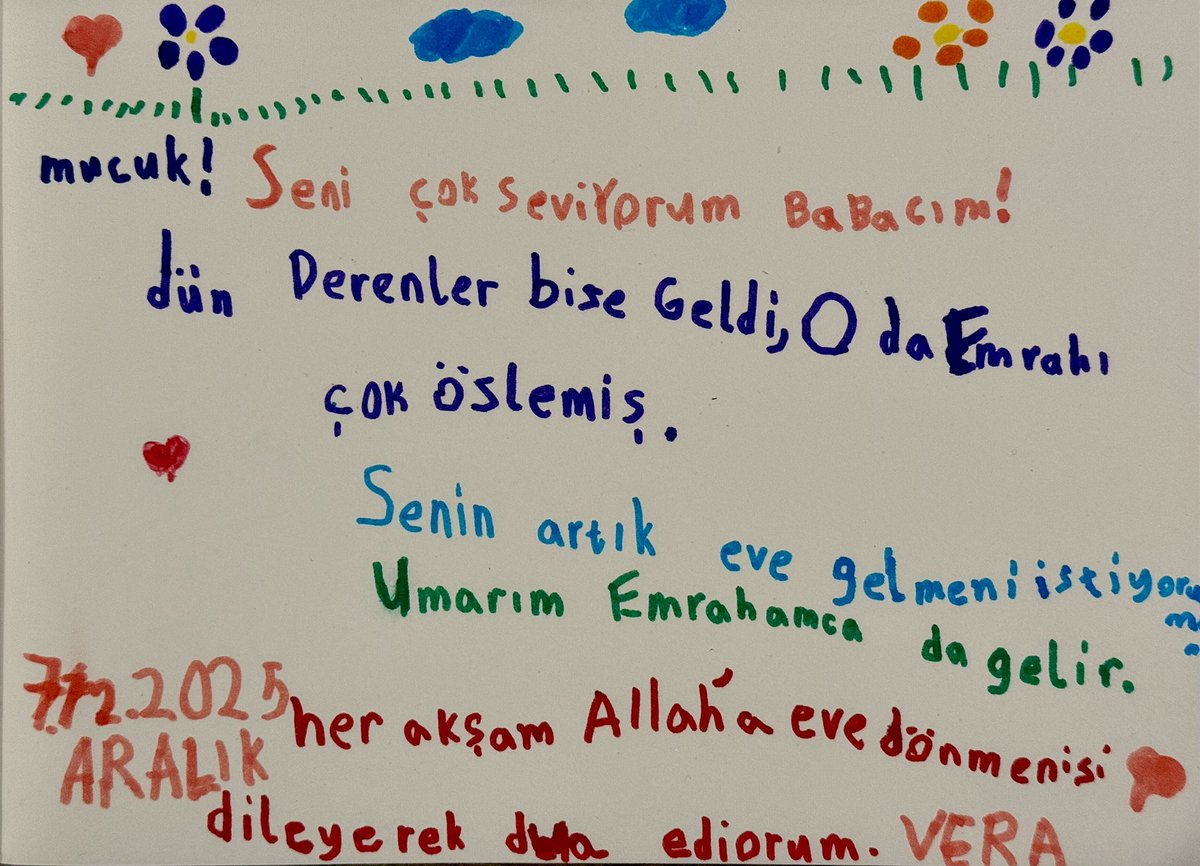 mucuk! Seni çok seviYorum BaBacım!
dün Derenler bise Geldi, O da Emrahı
çok öslemiş.
Senin artık eve gelmeni istiyorum.
Umarım Emrahamca da gelir.
7.12.2025
ARALIK
her akşam Allah'a eve dönmenisi
dileyerek dua ediorum. VERA